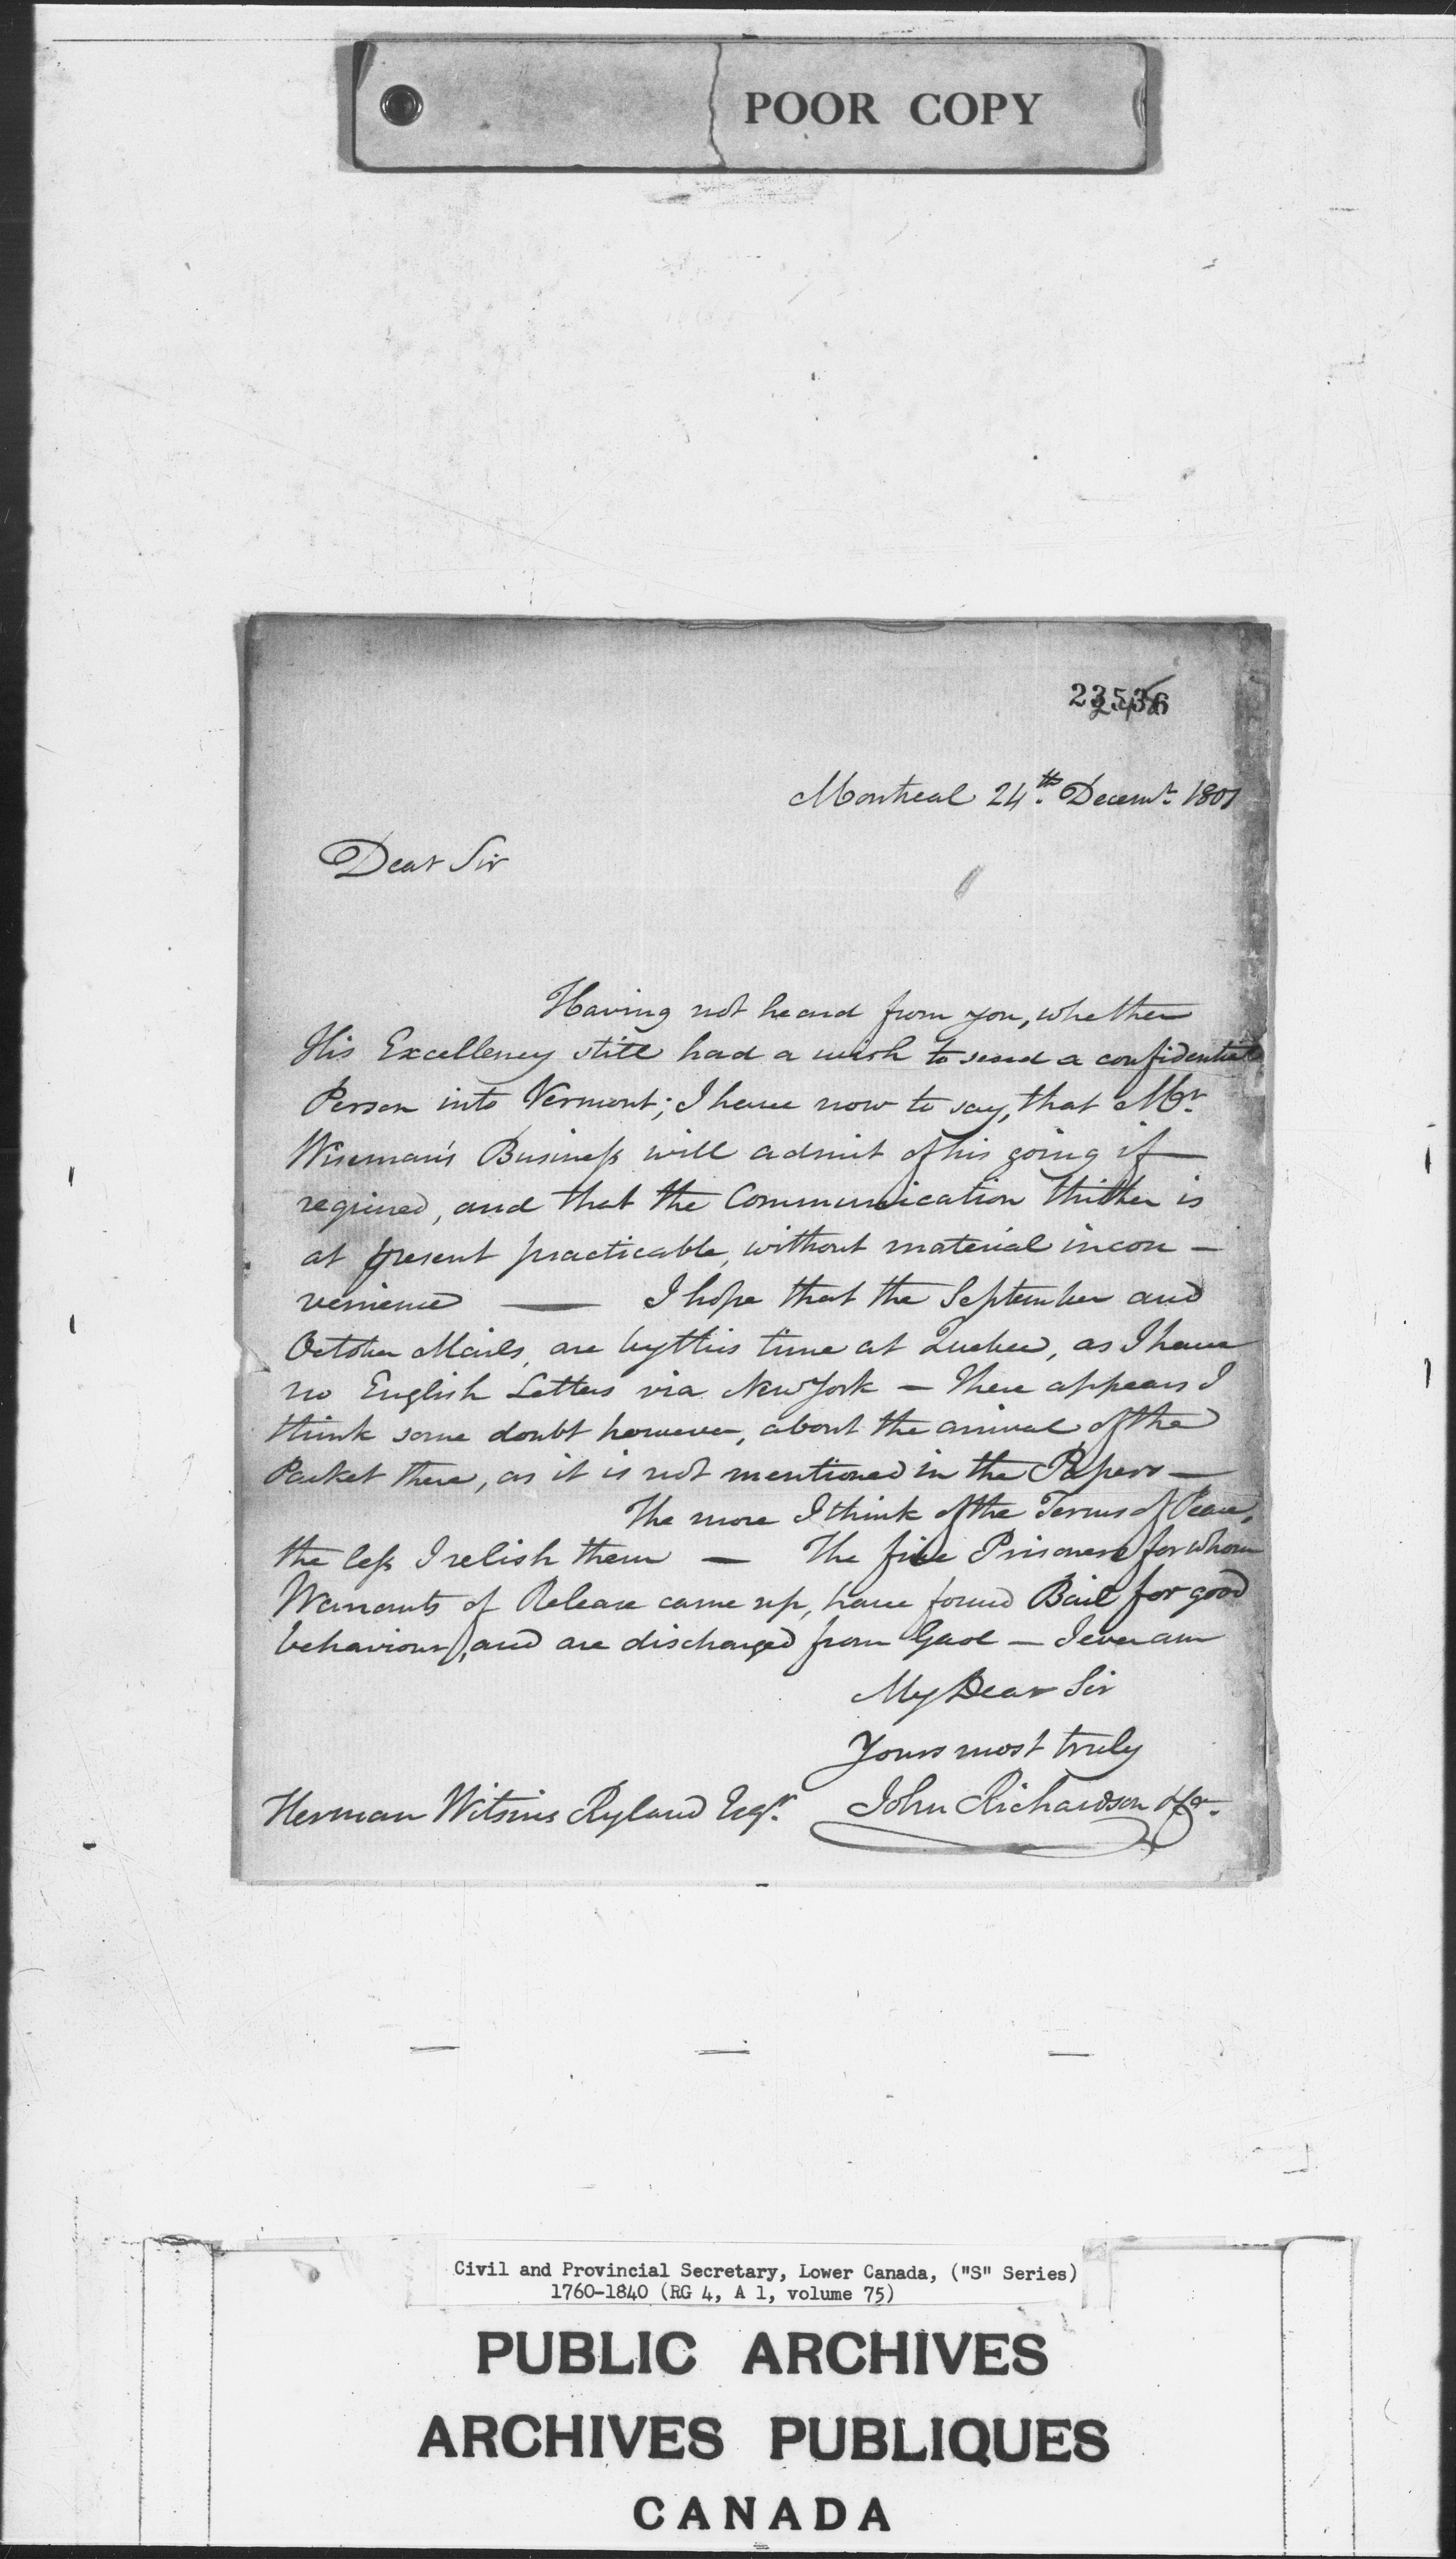 POOR COPY
23536
Montreal 24th. Decemr. 1801
Dear Sir
Having not heard from you, whether
His Excellency still had a wish to send a confidential
Person into Vermont; I have now to say, that Mr.
Wiseman's Business will admit of his going if
required, and that the Communication thither is
at present practicable, without material incon-
venience — I hope that the September and
October Mails, are by this time at Quebec, as I have
no English Letters via New York — There appears I
think some doubt however, about the arrival of the
Packet there, as it is not mentioned in the Papers —
The more I think of the Terms of Peace,
the less I relish them — The five Prisoners for whom
Warrants of Release came up, have found Bail for good
behaviour, and are discharged from Gaol — I ever am
My Dear Sir
Yours most truly
Herman Witsius Ryland Esqr. John Richardson
Civil and Provincial Secretary, Lower Canada, ("S" Series)
1760-1840 (RG 4, A 1, volume 75)
PUBLIC ARCHIVES
ARCHIVES PUBLIQUES
CANADA